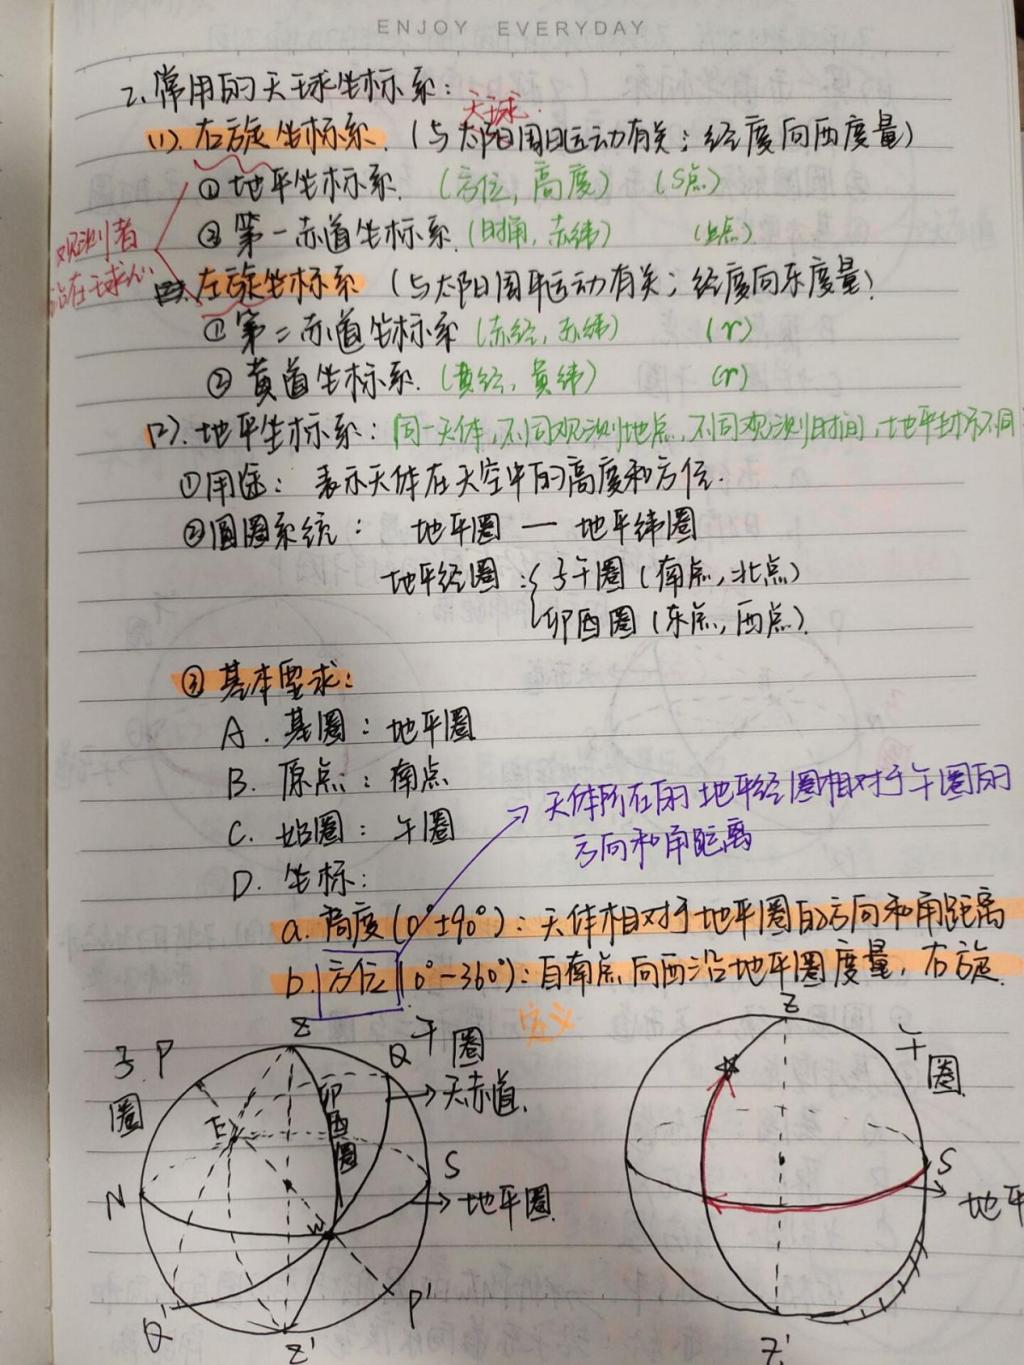 ENJOY EVERYDAY
2. 常用的天球坐标系:
天球
(1). 右旋坐标系. (与太阳周日运动有关; 经度向西度量)
① 地平坐标系. (方位, 高度) (S点)
② 第一赤道坐标系. (时角, 赤纬) (上点)
观测者
站在天球心
左旋坐标系 (与太阳周年运动有关; 经度向东度量)
① 第二赤道坐标系 (赤经, 赤纬) (r)
② 黄道坐标系. (黄经, 黄纬) (r)
(2). 地平坐标系: 同一天体, 不同观测地点, 不同观测时间, 地平坐标不同
① 用途: 表示天体在天空中的高度和方位.
② 圆圈系统: 地平圈 — 地平纬圈
地平经圈: { 子午圈 (南点, 北点)
卯酉圈 (东点, 西点).
③ 基本要求:
A. 基圈: 地平圈
B. 原点: 南点
→ 天体所在的地平经圈相对于午圈的
C. 始圈: 午圈
方向和角距离
D. 坐标:
a. 高度 (0°±90°): 天体相对于地平圈的方向和角距离
b. 方位 (0°-360°): 自南点向西沿地平圈度量, 右旋.
定义
Z
子 P
圈
Q 午圈
→天赤道.
卯酉圈
E
N
S
→地平圈
W
Q'
P'
Z'
Z
午圈
S
→地平
Z'